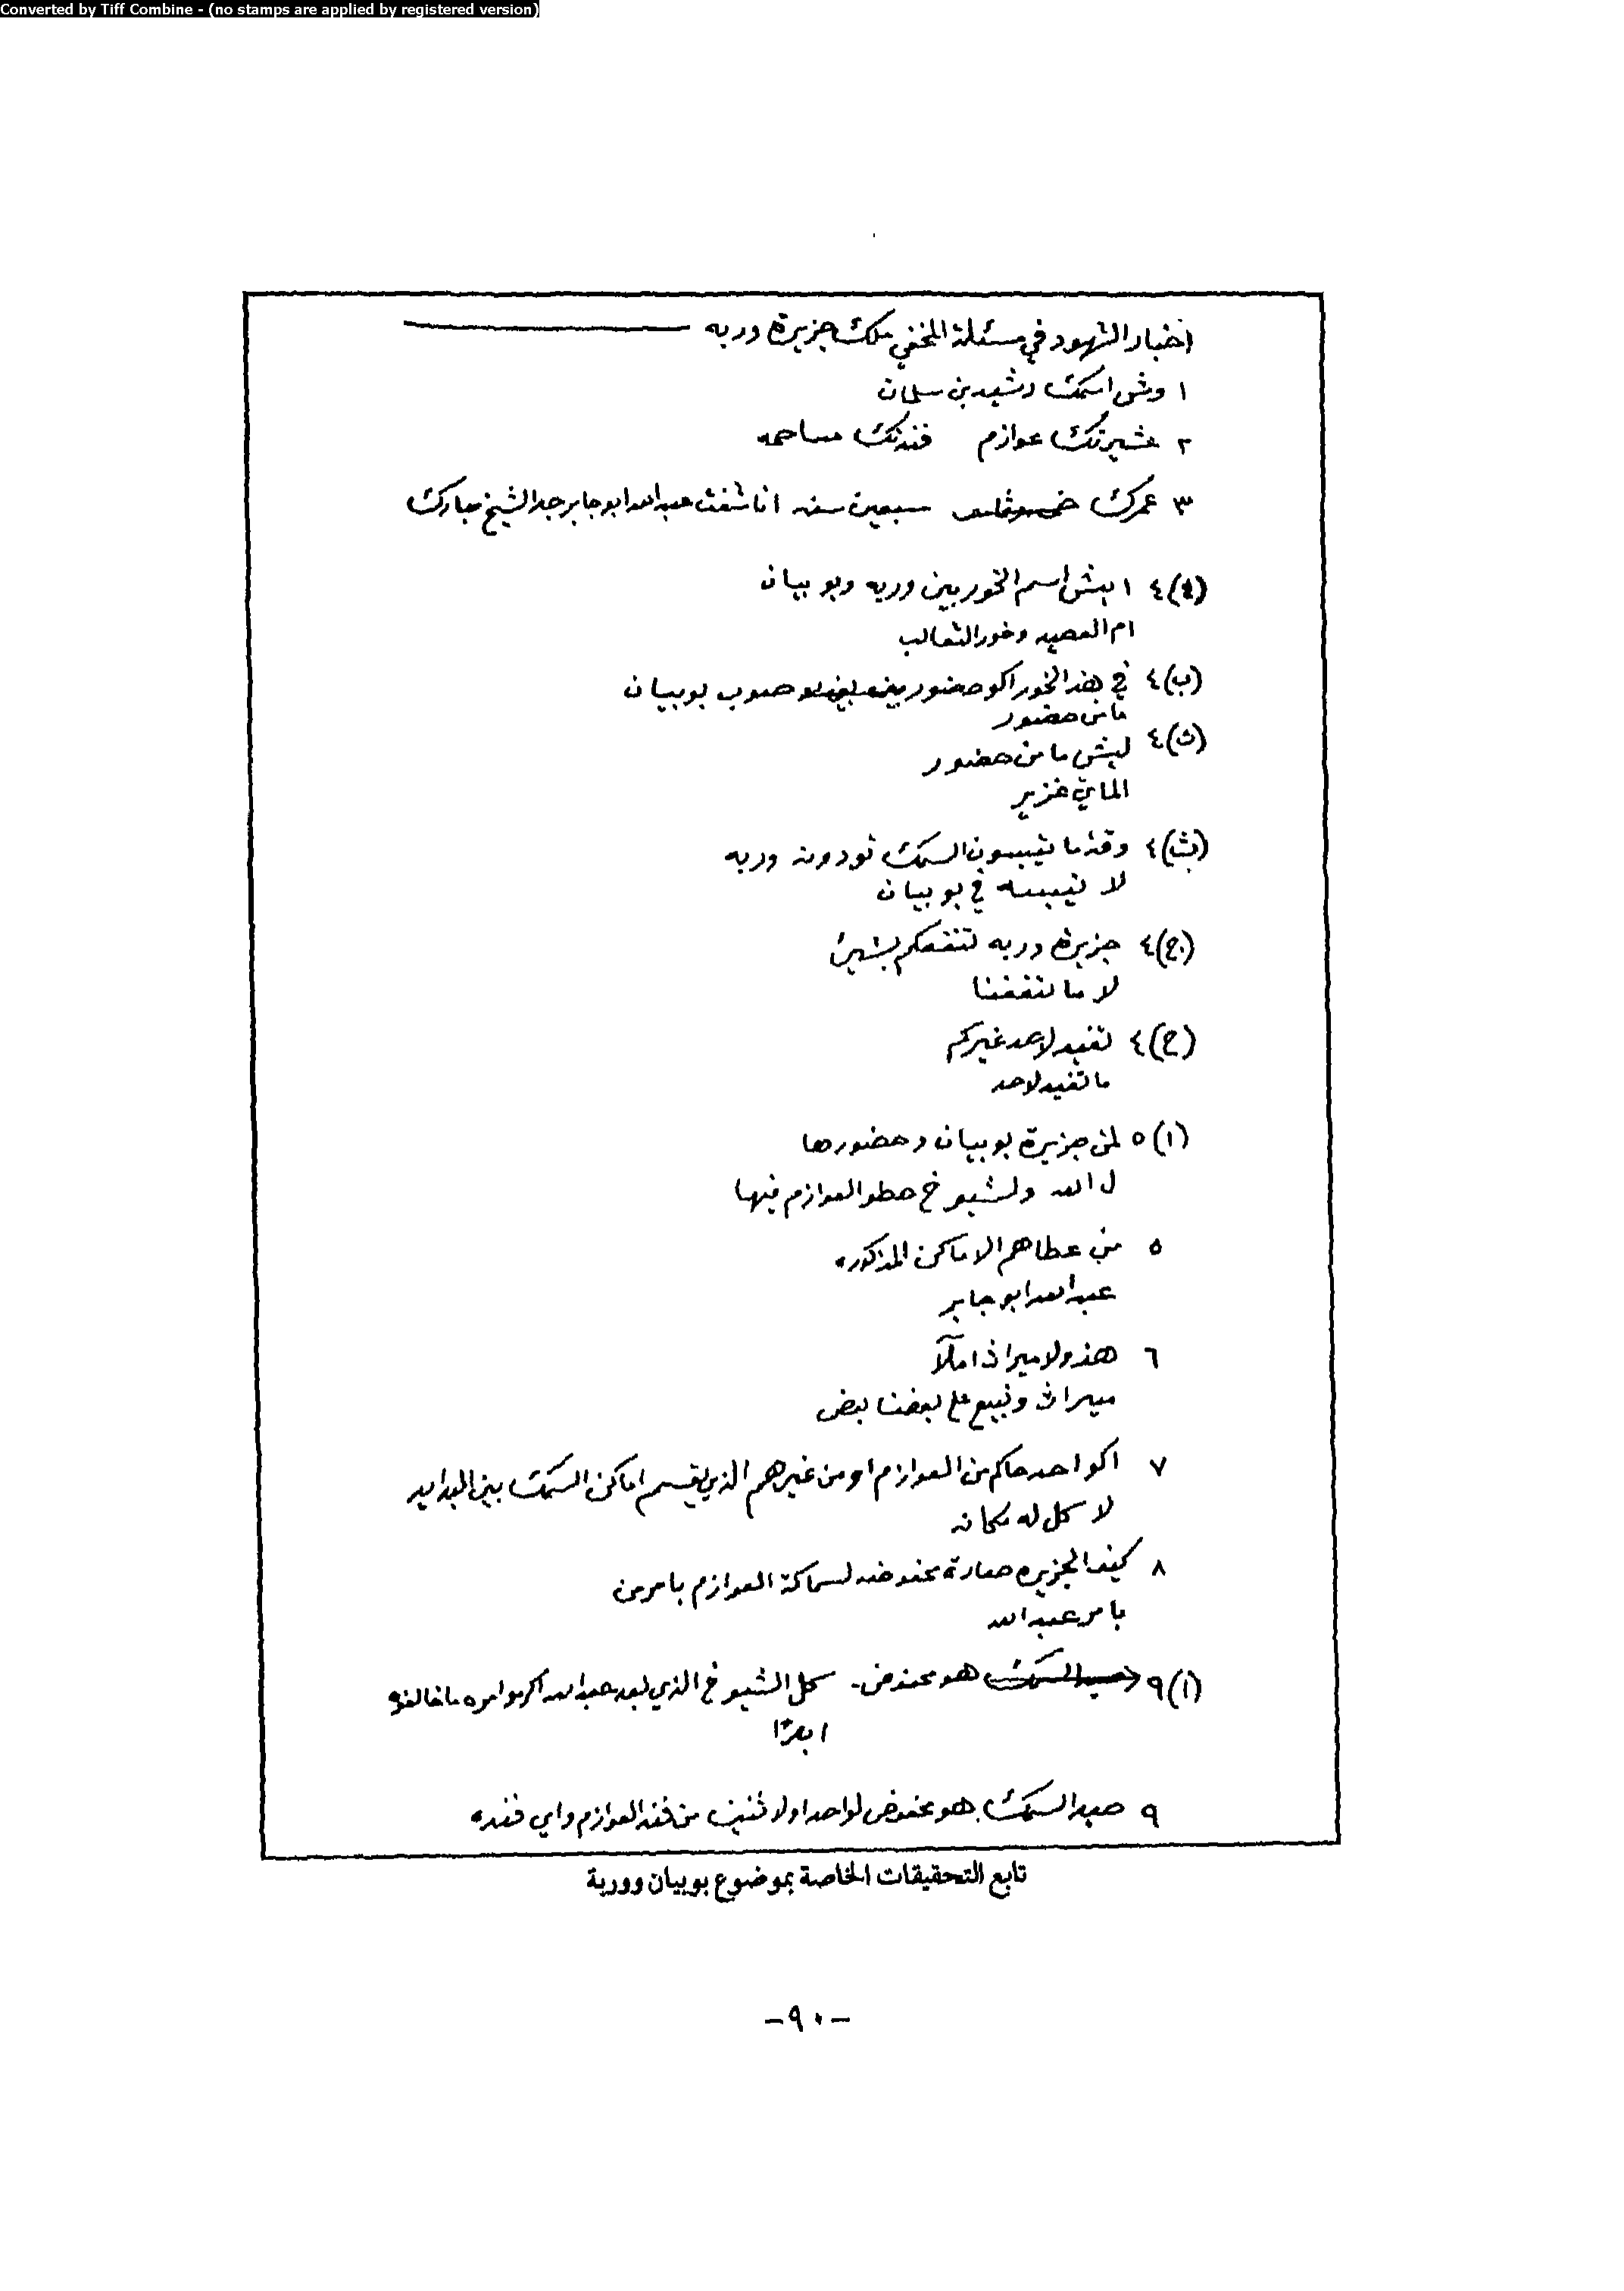 Converted by Tiff Combine - (no stamps are applied by registered version)
اخبار الشهود في مسئلة ملك جزيرة وربه
١ وش اسمك رشيد بن سلمان
٢ عشيرتك عوازم فندتك مساحمه
٣ عمرك سبعين سنه انا شفت عبدالله ابو جابر جد الشيخ مبارك
٤ (أ) ايش اسم الخور بين وربه وبوبيان
ام العصيد وخور الثعالب
٤ (ب) في هذ الخور اكو حضور صوب بوبيان
ما من حضور
٤ (ت) ليش ما من حضور
الماي غزير
٤ (ث) وقت ما تيبسون السمك تودونه وربه
لا نيبسه في بوبيان
٤ (ج) جزيرة وربه تنفعكم بشين
لا ما تنفعنا
٤ (ح) تفيد لاحد غيركم
ما تفيد لاحد
٥ (ا) لمن جزيرة بوبيان وحضورها
ل الله ولشيوخ حطو العوازم فيها
٥ من عطاهم الاماكن المذكوره
عبدالله ابو جابر
٦ هذولا ميراث املآ
ميراث ونبيع على بعضنا بعض
٧ اكو احد حاكم من العوازم او من غيرهم الذي يقسم اماكن السمك بين
لا كل له مكانه
٨ كيف الجزيره صارة مخفوضه لسماكة العوازم بامر من
بامر عبدالله
٩ (ا) صيد السمك هو مخفوض - كل الشيوخ الذي بعد عبدالله اكرموا امره ما خالفوه
ابدًا
٩ صيد السمك هو مخفوض لواحد او لاثنين من فند العوازم واي فنده
تابع التحقيقات الخاصة بموضوع بوبيان ووربة
-٩٠-